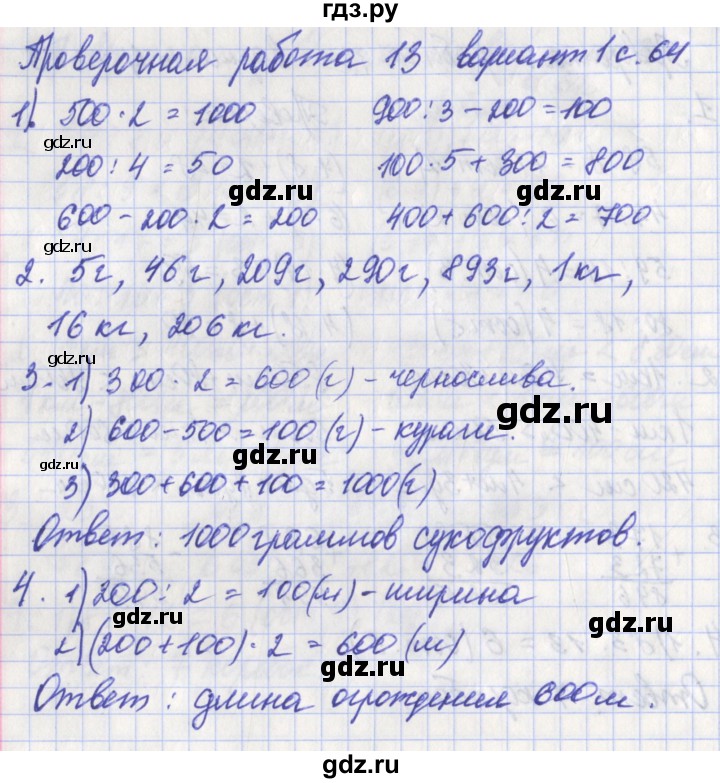 гдз.ру
Проверочная работа 13 вариант 1 с. 64
1). 500 · 2 = 1000 900 : 3 - 200 = 100
gdz.ru
200 : 4 = 50 100 · 5 + 300 = 800
gdz.ru gdz.ru
600 - 200 · 2 = 200 400 + 600 : 2 = 700
2. 5г, 46г, 209г, 290г, 893г, 1кг,
16кг, 206кг.
gdz.ru
3. 1) 300 · 2 = 600 (г) - чернослива.
gdz.ru
2) 600 - 500 = 100 (г) - кураги.
gdz.ru gdz.ru
3) 300 + 600 + 100 = 1000 (г)
Ответ: 1000 граммов сухофруктов.
gdz.ru
4. 1) 200 : 2 = 100 (м) - ширина
gdz.ru
2) (200 + 100) · 2 = 600 (м)
gdz.ru
Ответ: длина ограждения 600м.
gdz.ru
gdz.ru